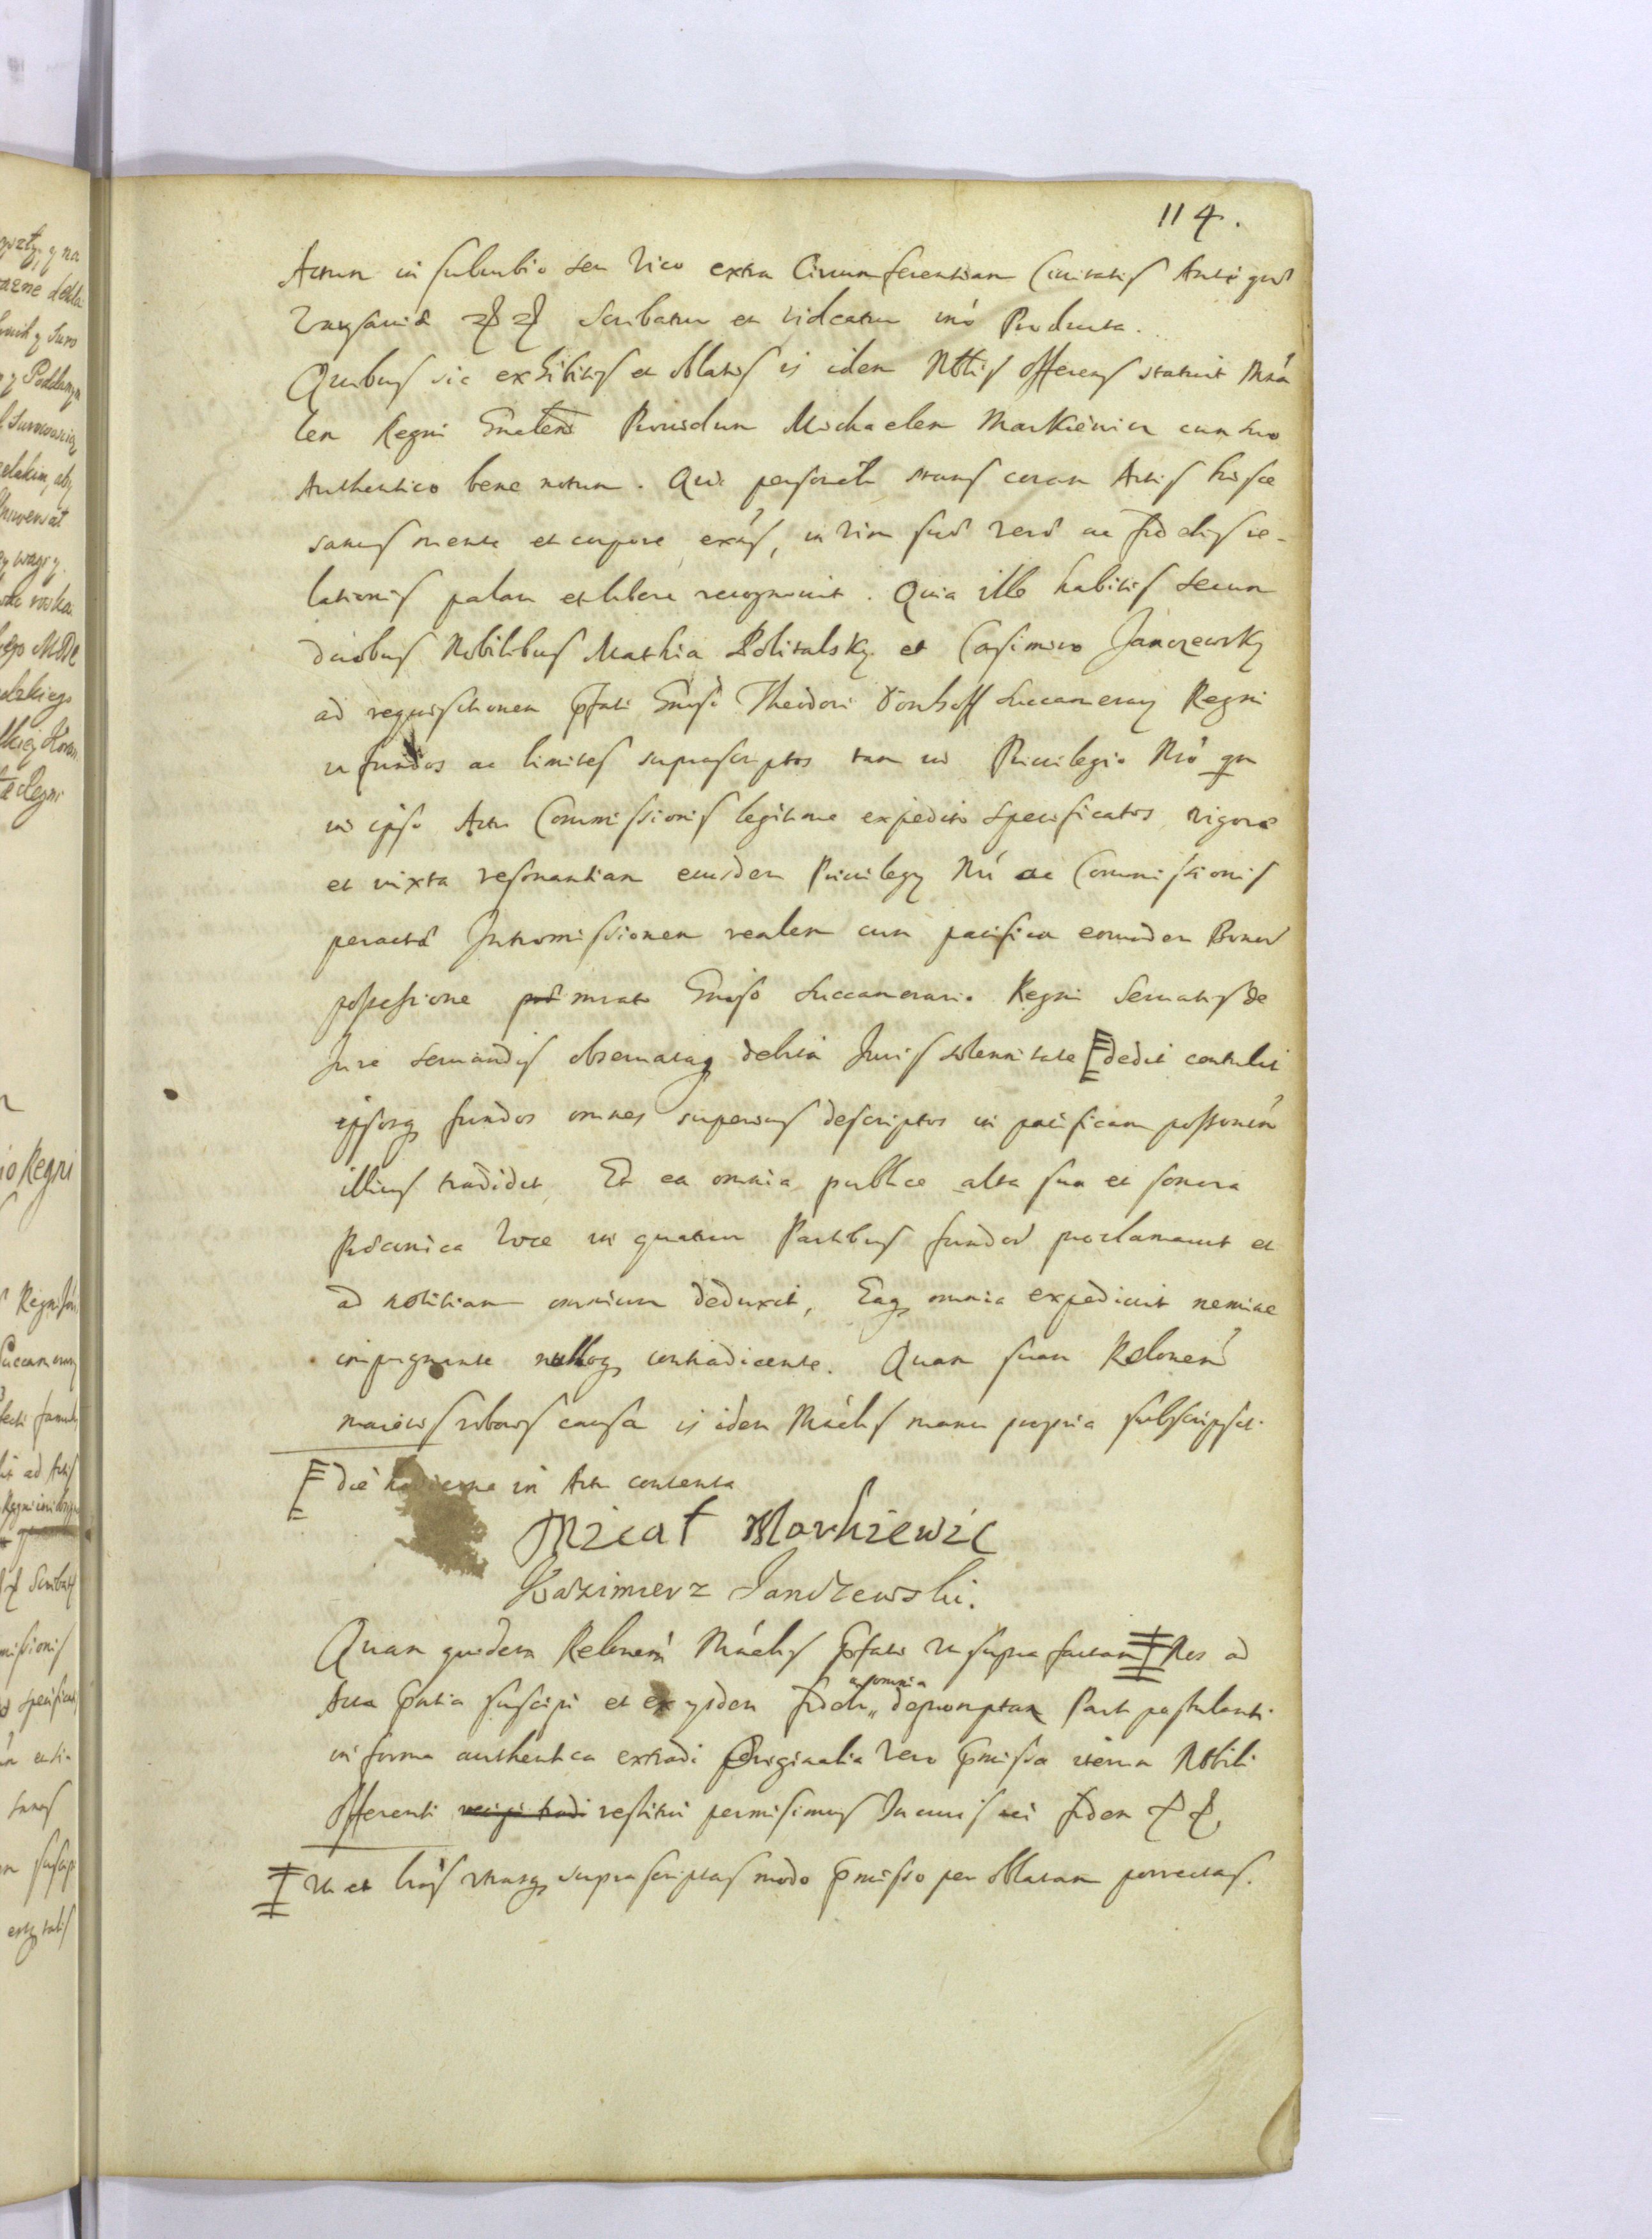 114.
Actum in suburbio seu Vico extra Circumferentiam Civitatis Antiquæ
Scribatur et videatur in Producta.
Quibus sic exhibitis et oblatis is idem Nblis offerens statuit Mrã
lem Regni Gnãlem Providum Michaelem Markiewicz cum suo
Authentico bene notum. Qui personalr stans coram Actis hisce
sanus mente et corpore exñs, in vim suæ veræ ac fidelis re-
lationis palam et libere recognouit. Quia ille habitis secum
duobus Nobilibus Mathia Politalsky et Casimiro Janczewsky
ad requisitionem pfati Gnosi Theodori Donhoff Succamerary Regni
in fundos ac limites suprascriptos tam in Priuilegio Nrõ qm
in ipso Actu Commissionis legitime expedito specificatos vigore
et iuxta resonantiam eiusdem Priuilegy Nri ac Commissionis
peractæ Intromissionem realem cum pacifica eorundem Bonor
possessione Gnoso Succamerario Regni Seruatis de
Jure seruandis obseruataq debita Juris solennitate dedit contulit
ipsosq fundos omnes superius descriptos in pacificam possonem
illius tradidit, Et ea omnia publice alta sua et sonora
Præconica Voce in quatuor Partibus fundor proclamauit et
ad notitiam omnium deduxit, Eaq omnia expediuit nemine
impugnante nulloq contradicente. Quam suam Relonem
maioris roboris causa is idem Mrãlis manu propria subscripsit.
die hodierna in Actu contenta
Micał Markiewic
Kazimierz Janczewski.
Quam quidem Relonem Mrãlis pfati ut supra factam Nos ad
a omnia
Acta pntia suscipi et ex ysdem fideli depromptam Parti postulanti
in forma authentica extradi Originalia vero pmissa iterum Nobili
offerenti restitui permisimus In cuius rei fidem
Ut et lras utrasq suprascriptas modo pmisso per oblatam porrectas.